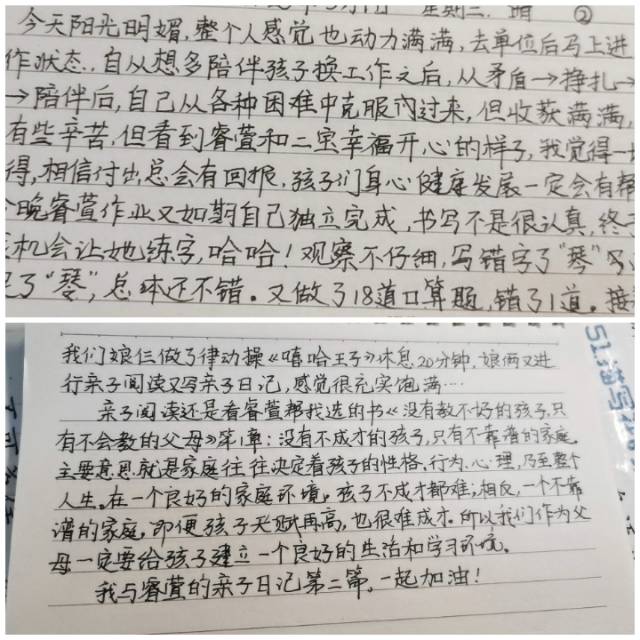 星期三. 晴 ②
今天阳光明媚,整个人感觉也动力满满,去单位后马上进
作状态..自从想多陪伴孩子换工作之后,从矛盾→挣扎→
→陪伴后,自己从各种困难中克服闪过来,但收获满满,
有些辛苦,但看到睿萱和二宝幸福开心的样子,我觉得一
得,相信付出总会有回报,孩子们身心健康发展一定会有帮
晚睿萱作业又如期自己独立完成,书写不是很认真,终于
机会让她练字,哈哈!观察不仔细,写错字了"琴"写
了"琴",总体还不错。又做了18道口算题,错了1道。接
我们娘仨做了律动操《嘻哈王子》休息20分钟,娘俩又进
行亲子阅读又写亲子日记,感觉很充实饱满…
亲子阅读还是看睿萱帮我选的书《没有教不好的孩子,只
有不会教的父母》第1章:没有不成才的孩子,只有不靠谱的家庭
主要意思就是家庭往往决定着孩子的性格,行为,心理,乃至整个
人生。在一个良好的家庭环境,孩子不成才都难;相反,一个不靠
谱的家庭,即便孩子天赋再高,也很难成才.所以我们作为父
母一定要给孩子建立一个良好的生活和学习环境。
我与睿萱的亲子日记第二篇。一起加油!